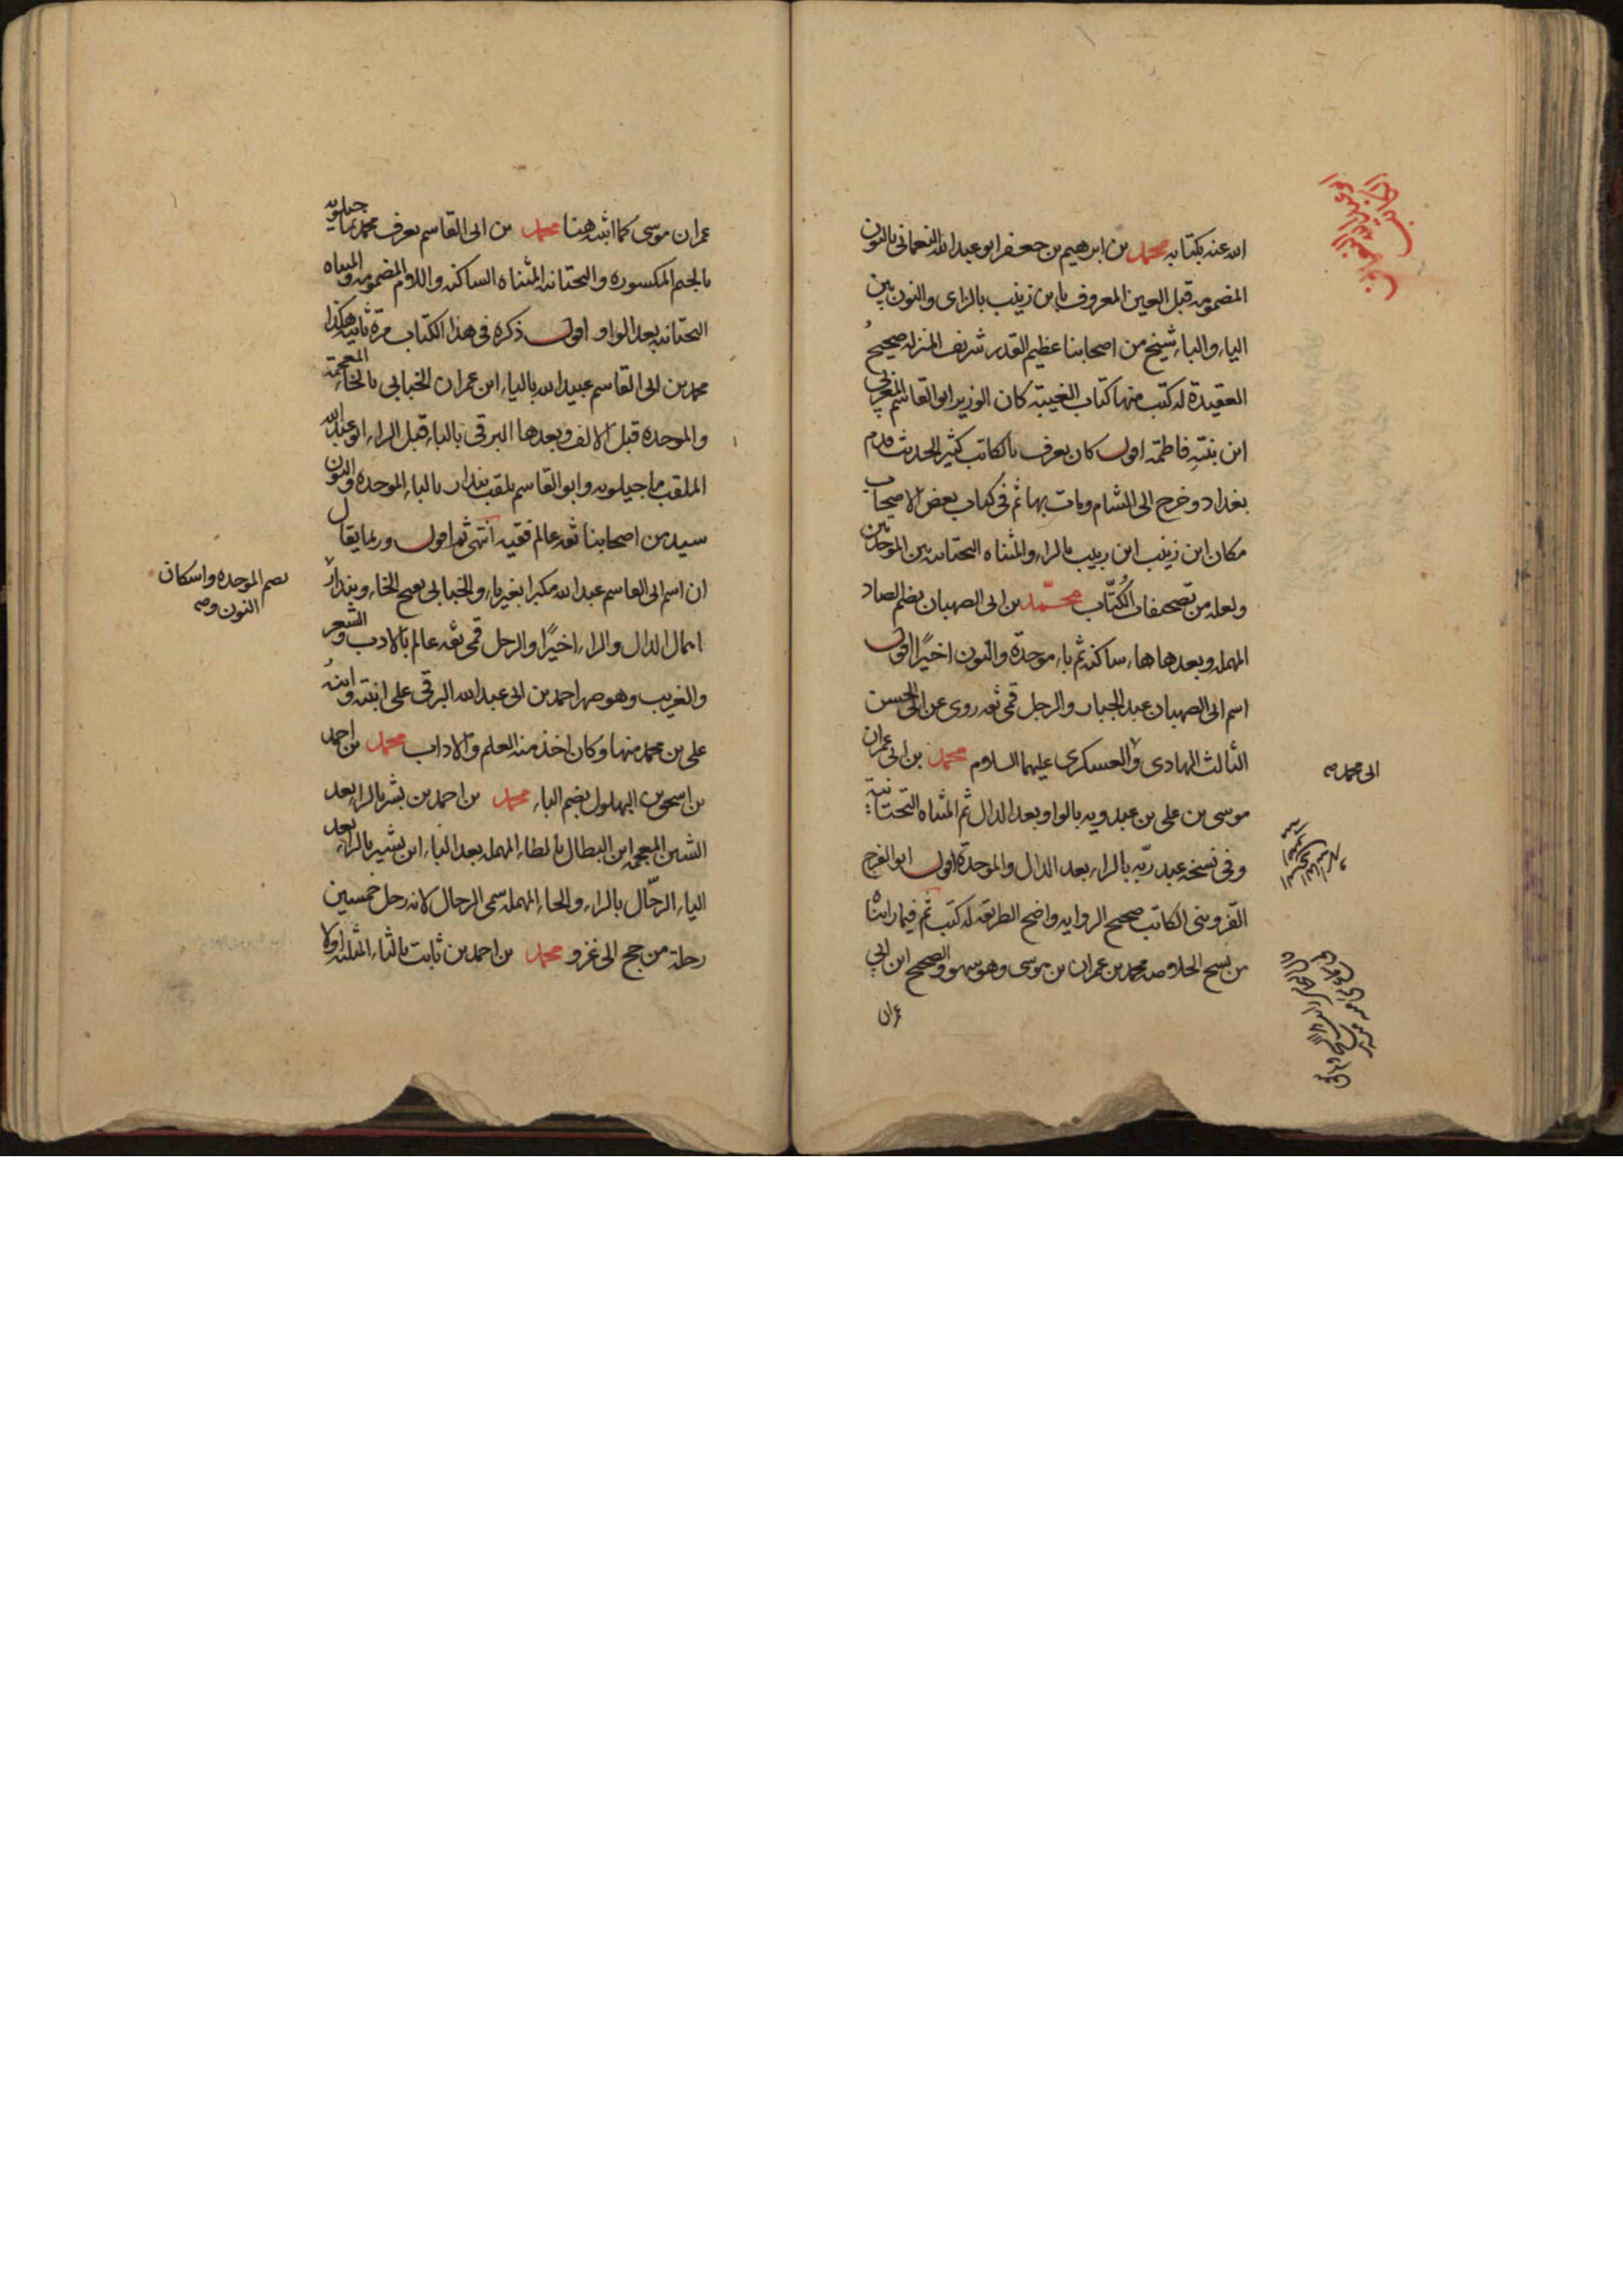 الله عنه بكتابه محمد بن ابرهيم بن جعفر ابو عبد الله النعماني بالنون
المضمومه قبل العين المعروف بابن زينب بالزاى والنون بين
الياء والباء شيخ من اصحابنا عظيم القدر شريف المنزله صحيح
العقيدة له كتب منها كتاب الغيبة كان الوزير ابو القاسم المغربي
ابن بنته فاطمة اقول كان يعرف بالكاتب كثير الحديث قدم
بغداد وخرج الى الشام ومات بها ثم في كتاب بعض الاصحاب
مكان ابن زينب ابن ربيب بالراء والمثناه التحتانيه بين الموحدتين
ولعله من تصحيفات الكُتّاب محمّد بن ابى الصهبان بضم الصاد
المهمله وبعدها هاء ساكنه ثم باء موحدّة والنون اخيرًا اقول
اسم ابى الصهبان عبد الجبار والرجل قمى ثقه روى عن ابى الحسن
الثالث الهادى والعسكرى عليهما السلام محمد بن ابى عمران
موسى بن على بن عبدويه بالواو بعد الدال ثم المثناه التحتانية
وفى نسخه عبد ربّه بالراء بعد الدال والموحدة اقول ابو الفرج
القزوينى الكاتب صحيح الروايه واضح الطريقه له كتب ثم فيما رايناه
من نسخ الخلاصه محمد بن عمران بن موسى وهو سهو والصحيح ابن ابي
عمران
ابى محمد صه
عمران موسى كما اثبته هنا محمد بن ابى القاسم يعرف محمد بماجيلويه
بالجيم المكسوره والتحتانيه المثناه الساكنه واللام المضمومه والمثناه
التحتانيه بعد الواو اقول ذكره فى هذا الكتاب مرّة ثانيه هكذا
محمد بن ابى القاسم عبيد الله بالياء ابن عمران الخبابى بالخاء المعجمة
والموحده قبل الالف وبعدها البرقى بالباء قبل الراء ابو عبد الله
الملقب ماجيلويه وابو القاسم يلقب بندار بالباء الموحده والنون
سيد من اصحابنا ثقه عالم فقيه انتهى ثم اقول وربما يقال
ان اسم ابى القاسم عبد الله مكبرا بغير ياء والخبابى بفتح الخاء وبندار
بضم الموحده واسكان
النون وصه
اهمال الدال والراء اخيرًا والرجل قمى ثقه عالم بالادب والشعر
والغريب وهو صهر احمد بن ابى عبد الله البرقى على ابنته وابنه
على بن محمد منها وكان اخذ منه العلم والاداب محمد بن احمد
بن اسحق بن البهلول بضم الباء محمد بن احمد بن بشر بالراء بعد
الشين المعجمه ابن البطال بالطاء المهمله بعد الباء ابن بشير بالراء بعد
الياء الرحّال بالراء والحاء المهمله سمى الرحال لانه رحل خمسين
رحلة من حج الى غزو محمد بن احمد بن ثابت بالثاء المثلثه اولا